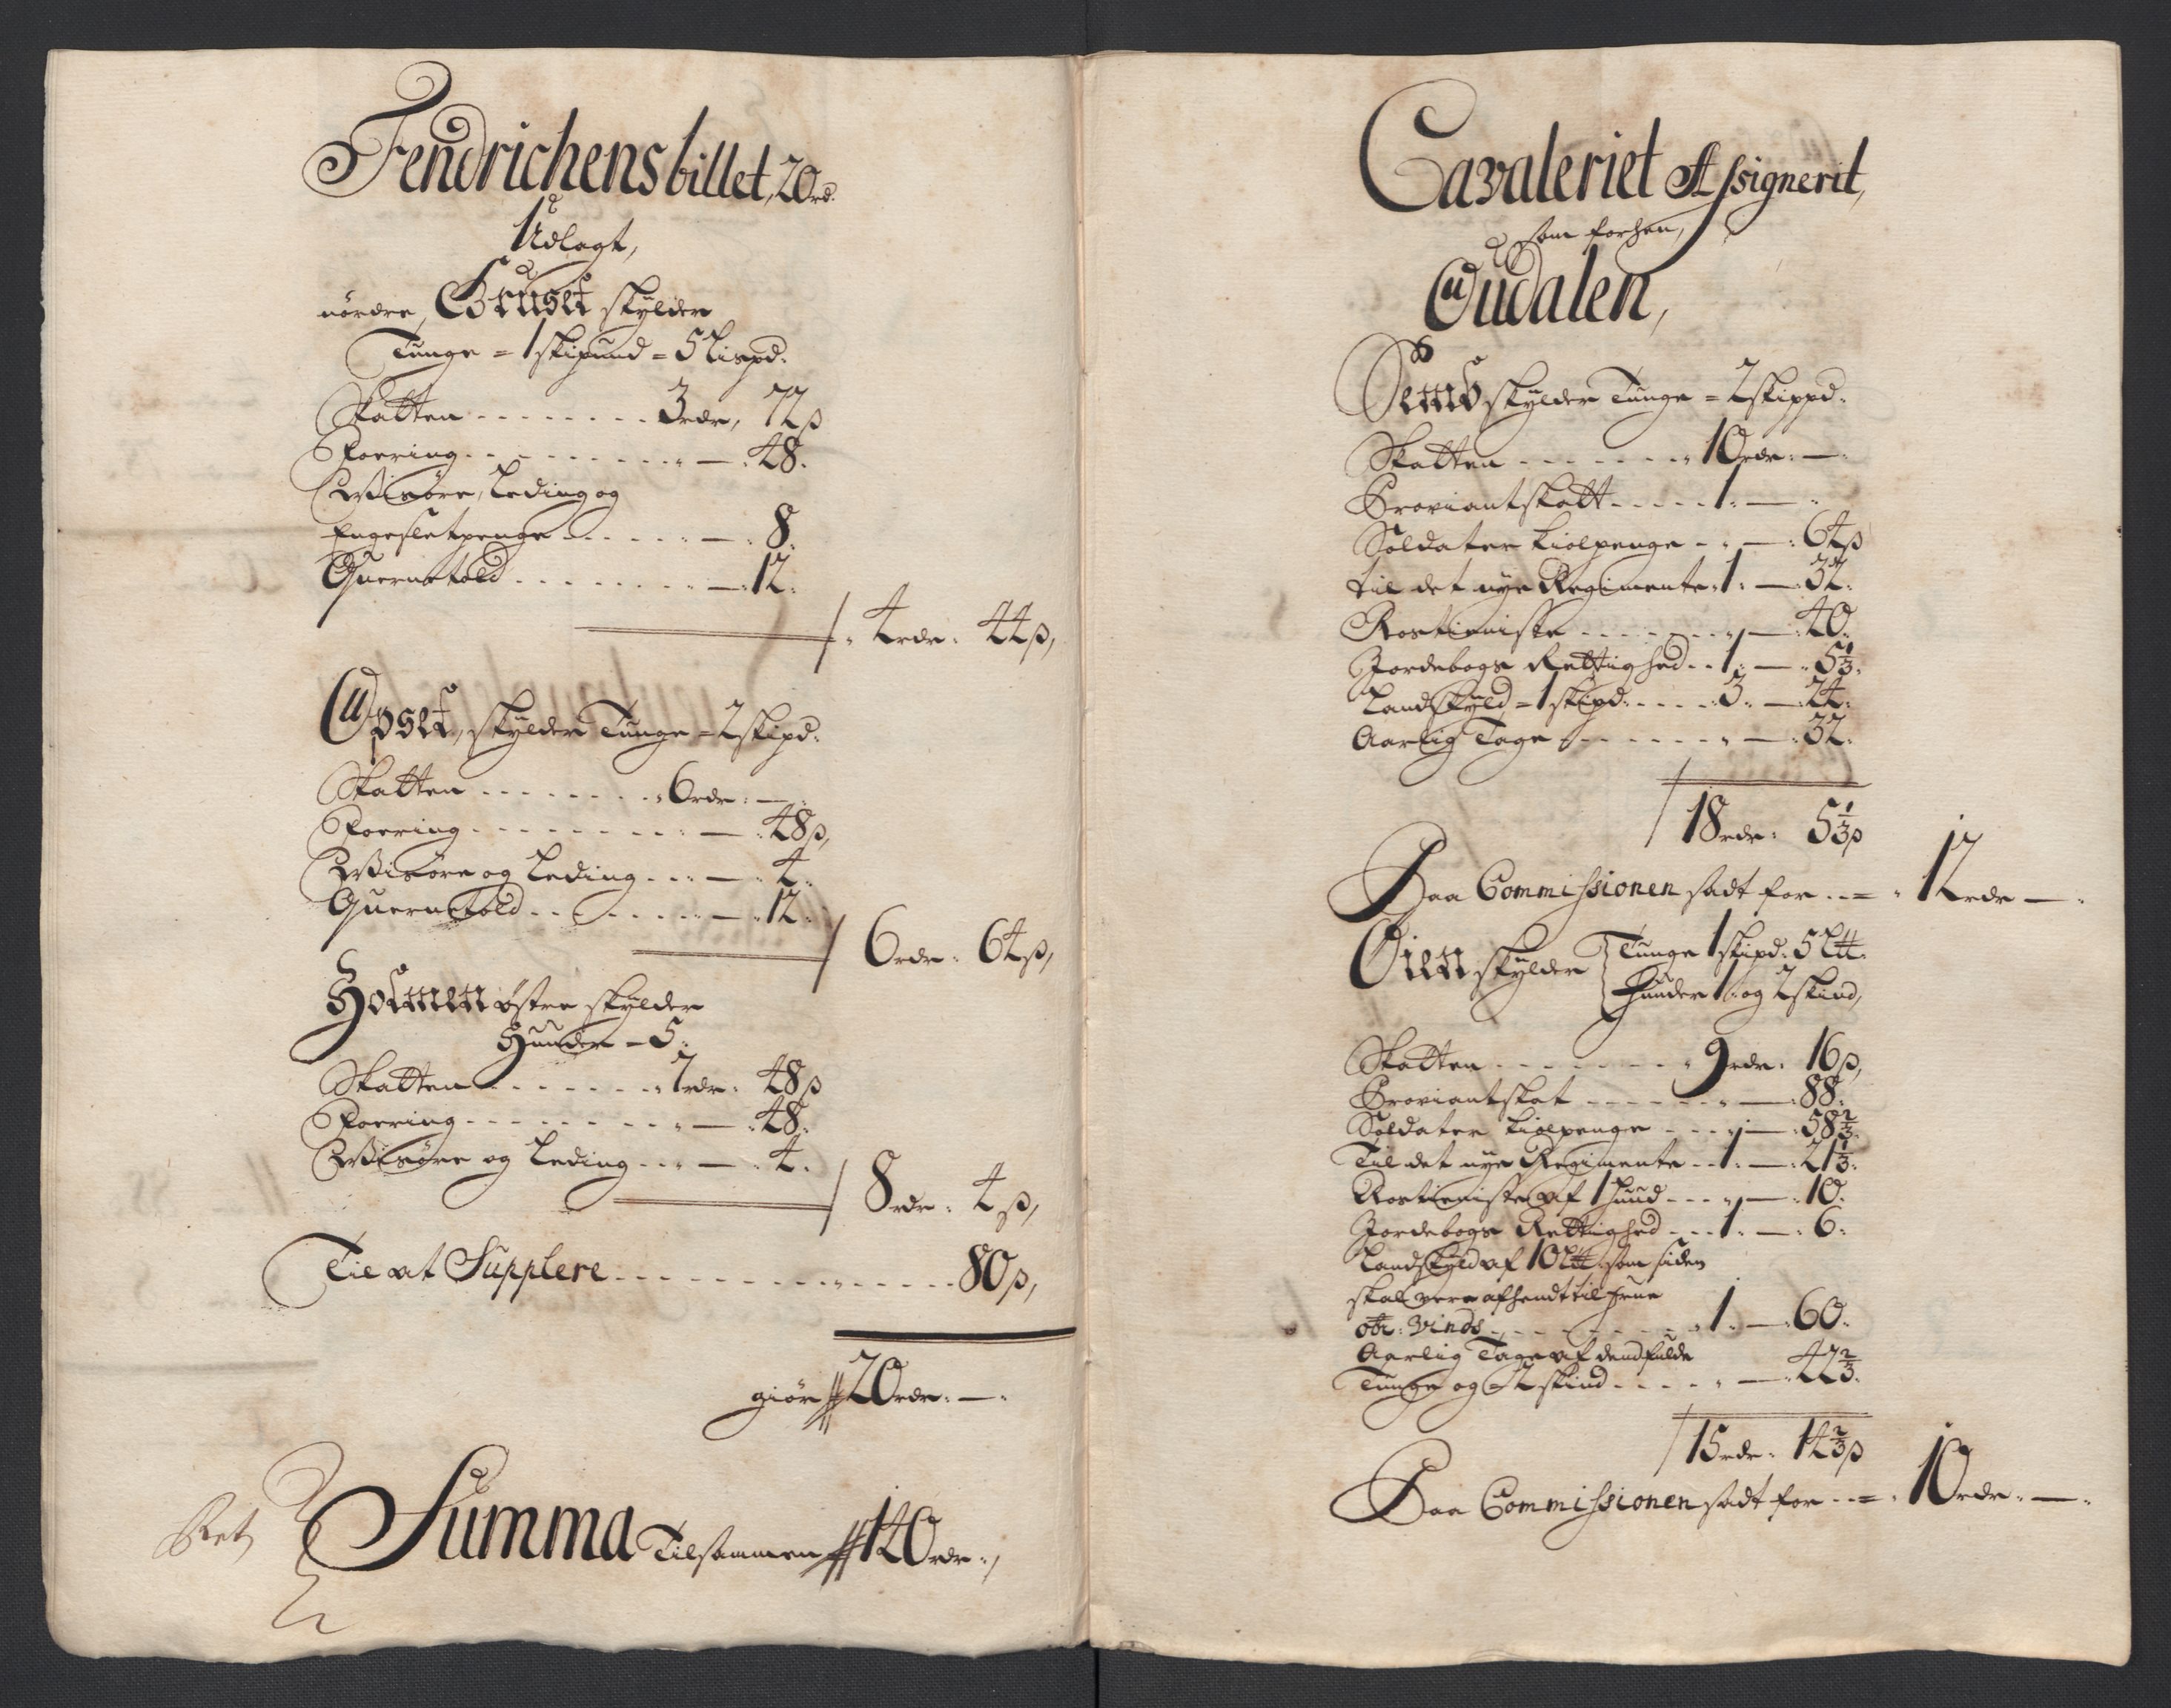 Fendrichens billet, 20 rd.
Udlagt,
nördre, Gruset skylder
Tunge = 1 skipund = 5 Lispd:
Skatten - - - - - - - 3 rdr, 72 ß
Foering - - - - - - - - - — : 48.
Wisöre, Leding og
Engesletpenge - - - - - - — : 8.
Quernetold - - - - - - - - — : 12.
4 rdr. 44 ß,
Opset, skylder Tunge = 2 skipd:
Skatten - - - - - - - - 6 rdr: —
Foering - - - - - - - - - — : 48 ß,
Wisöre og Leding - - - — : 4.
Quernetold - - - - - - - — : 12.
6 rdr. 64 ß,
Holmen östre skylder
Hunder = 5.
Skatten - - - - - - - 7 rdr. 48 ß
Foering - - - - - - - - - — : 48.
Wisöre og Leding - - - — : 4.
8 rdr. 4 ß,
Til at Supplere - - - - - - - - - - - - 80 ß,
giör 20 rdr. —
Ret Summa Tilsammen 140 rdr.,
Cavaleriet Assignerit,
som forhen,
Oudalen,
Semb skylder Tunge = 2 skippd:
Skatten - - - - - - - 10 rdr: —
Proviantskatt - - - - - 1. —
Soldater Kiolpenge - - — : 64 ß
til det nye Regimente . 1. — 32.
Rostieniste - - - - - - - — : 40.
Jordebogs Rettighed - - 1. — 5 1/3.
Landskyld = 1 skipd. - - - - 3. — 24.
Aarlig Tage - - - - - - - — : 32.
18 rdr. 5 1/3 ß
Paa Commissionen sadt for - - = . 12 rdr —
Öien skylder Tunge 1 skipd. 5 L℔.
Hunder 1. og 2 skind,
Skatten - - - - - - - - 9 rdr. 16 ß,
Proviantskat - - - - - - — : 88.
Soldater Kiolpenge - - - — : 58 2/3.
Til det nye Regimente - - 1. — : 21 1/3.
Rostieniste af 1 huud - - - — : 10.
Jordebogs Rettighed - - - 1. — : 6.
Landskyld af 10 L℔. som siden
skal være afhendt til Frue
Ob: Vinds - - - - - - - - 1. — : 60.
Aarlig Tage af dend fulde
Tunge og = 2 skind - - - - — : 42 2/3.
15 rdr. 14 2/3 ß
Paa Commissionen sadt for - - = . 10 rdr. —